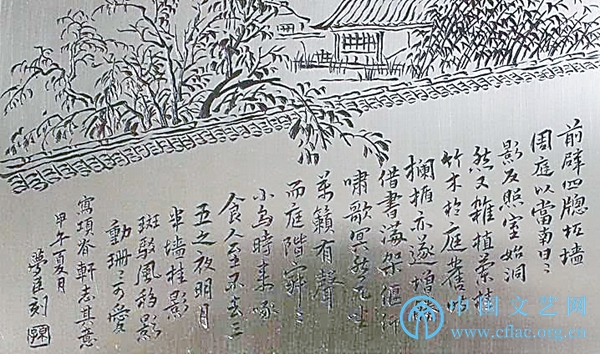 前辟四牕垣墙
周庭以當南日〻
影反照室始洞
然又雜植蘭桂
竹木於庭舊時
欄楯亦遂增勝
借書滿架偃仰
嘯歌冥然兀坐
萬籟有聲
而庭階寂〻
小鸟時来啄
食人至不去三
五之夜明月
半墙桂影
斑駁風移影
動珊〻可愛
寫項脊軒志其意
甲午夏月
刻
中国文艺网
www.cflac.org.cn